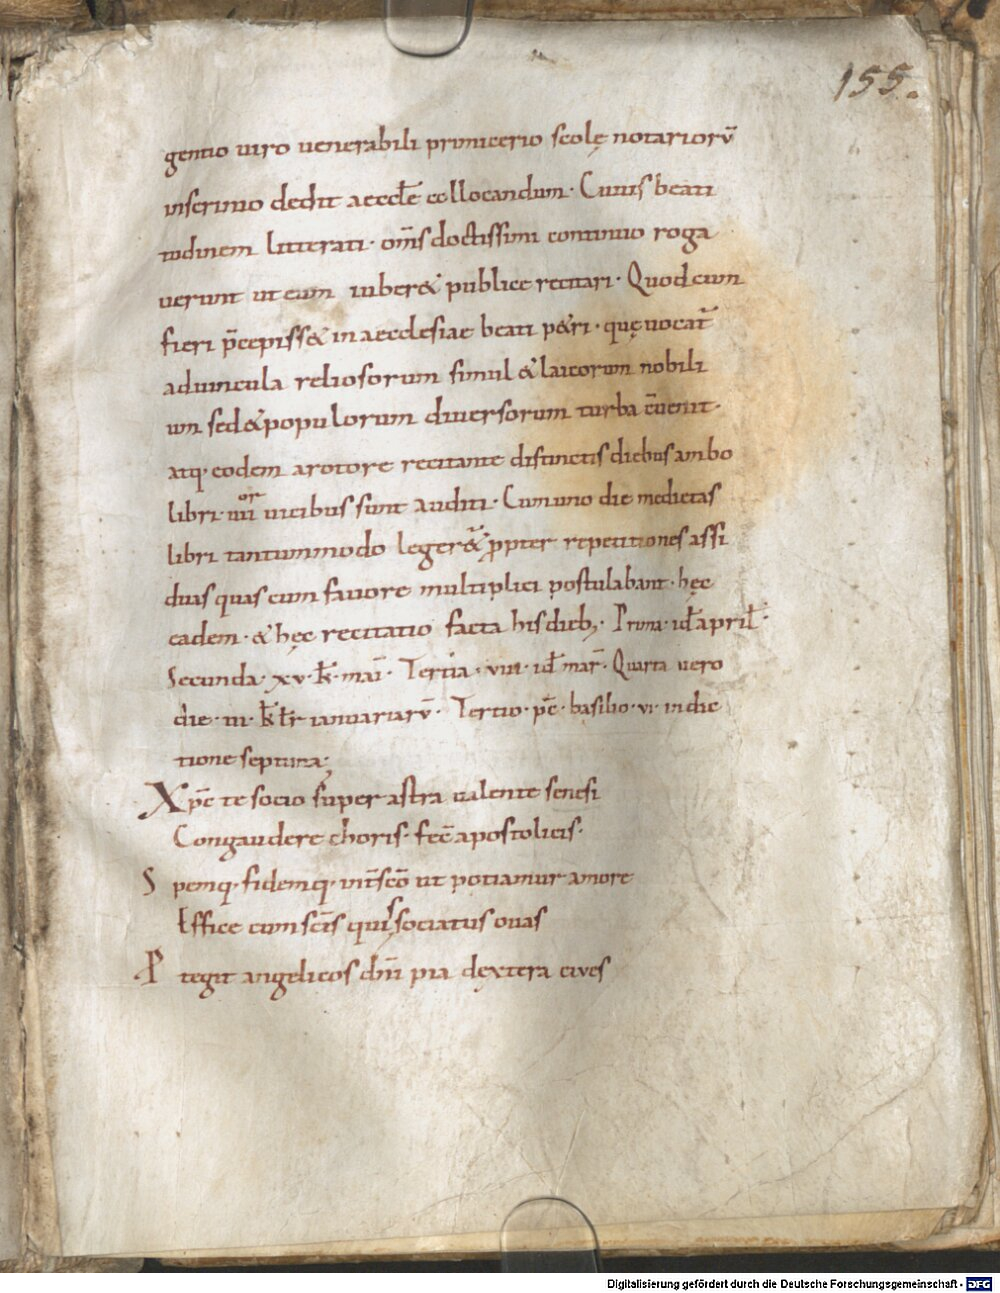 155.
gentio uiro uenerabili primicerio scolę notariorū
inscrinio dedit aeccłe collocandum· Cuius beati
tudinem litterati· om̄s doctissimi continuo roga
uerunt ut eum iuber& publice recitari· Quod cum
fieri p̄cepiss& in aecclesiae beati p&ri· quę uocat̄
aduincula reliosorum simul & laicorum nobili
um sed & populorum diuersorum turba c̄uenit·
atq· eodem arotore recitante distinctis diebus ambo
libri· iiii or uicibus sunt auditi· Cum uno die medietas
libri tantummodo leger&̄ ꝓpter repetitiones assi
duas quas cum fauore multiplici postulabant· hęc
eadem· & hęc recitatio facta his dieb;· Prima· id̄ april̄·
Secunda· xv· k̄· mai̅· Tertia· viii· id̄ mar̄· Quarta uero
die· iii· k̄ łr ianuariarū· Tertio· p̄c· basilio· vi· indic
tione septima;
Xp̄e te socio super astra ualente senesi
Congaudere choris· fec̄ apostolicis·
S pemq· fidemq· uin̄t sc̄o ut potiamur amore
Effice cum sc̄is quis sociatus ouas
P tegit angelicos dn̄i pia dextera ciues
Digitalisierung gefördert durch die Deutsche Forschungsgemeinschaft - DFG